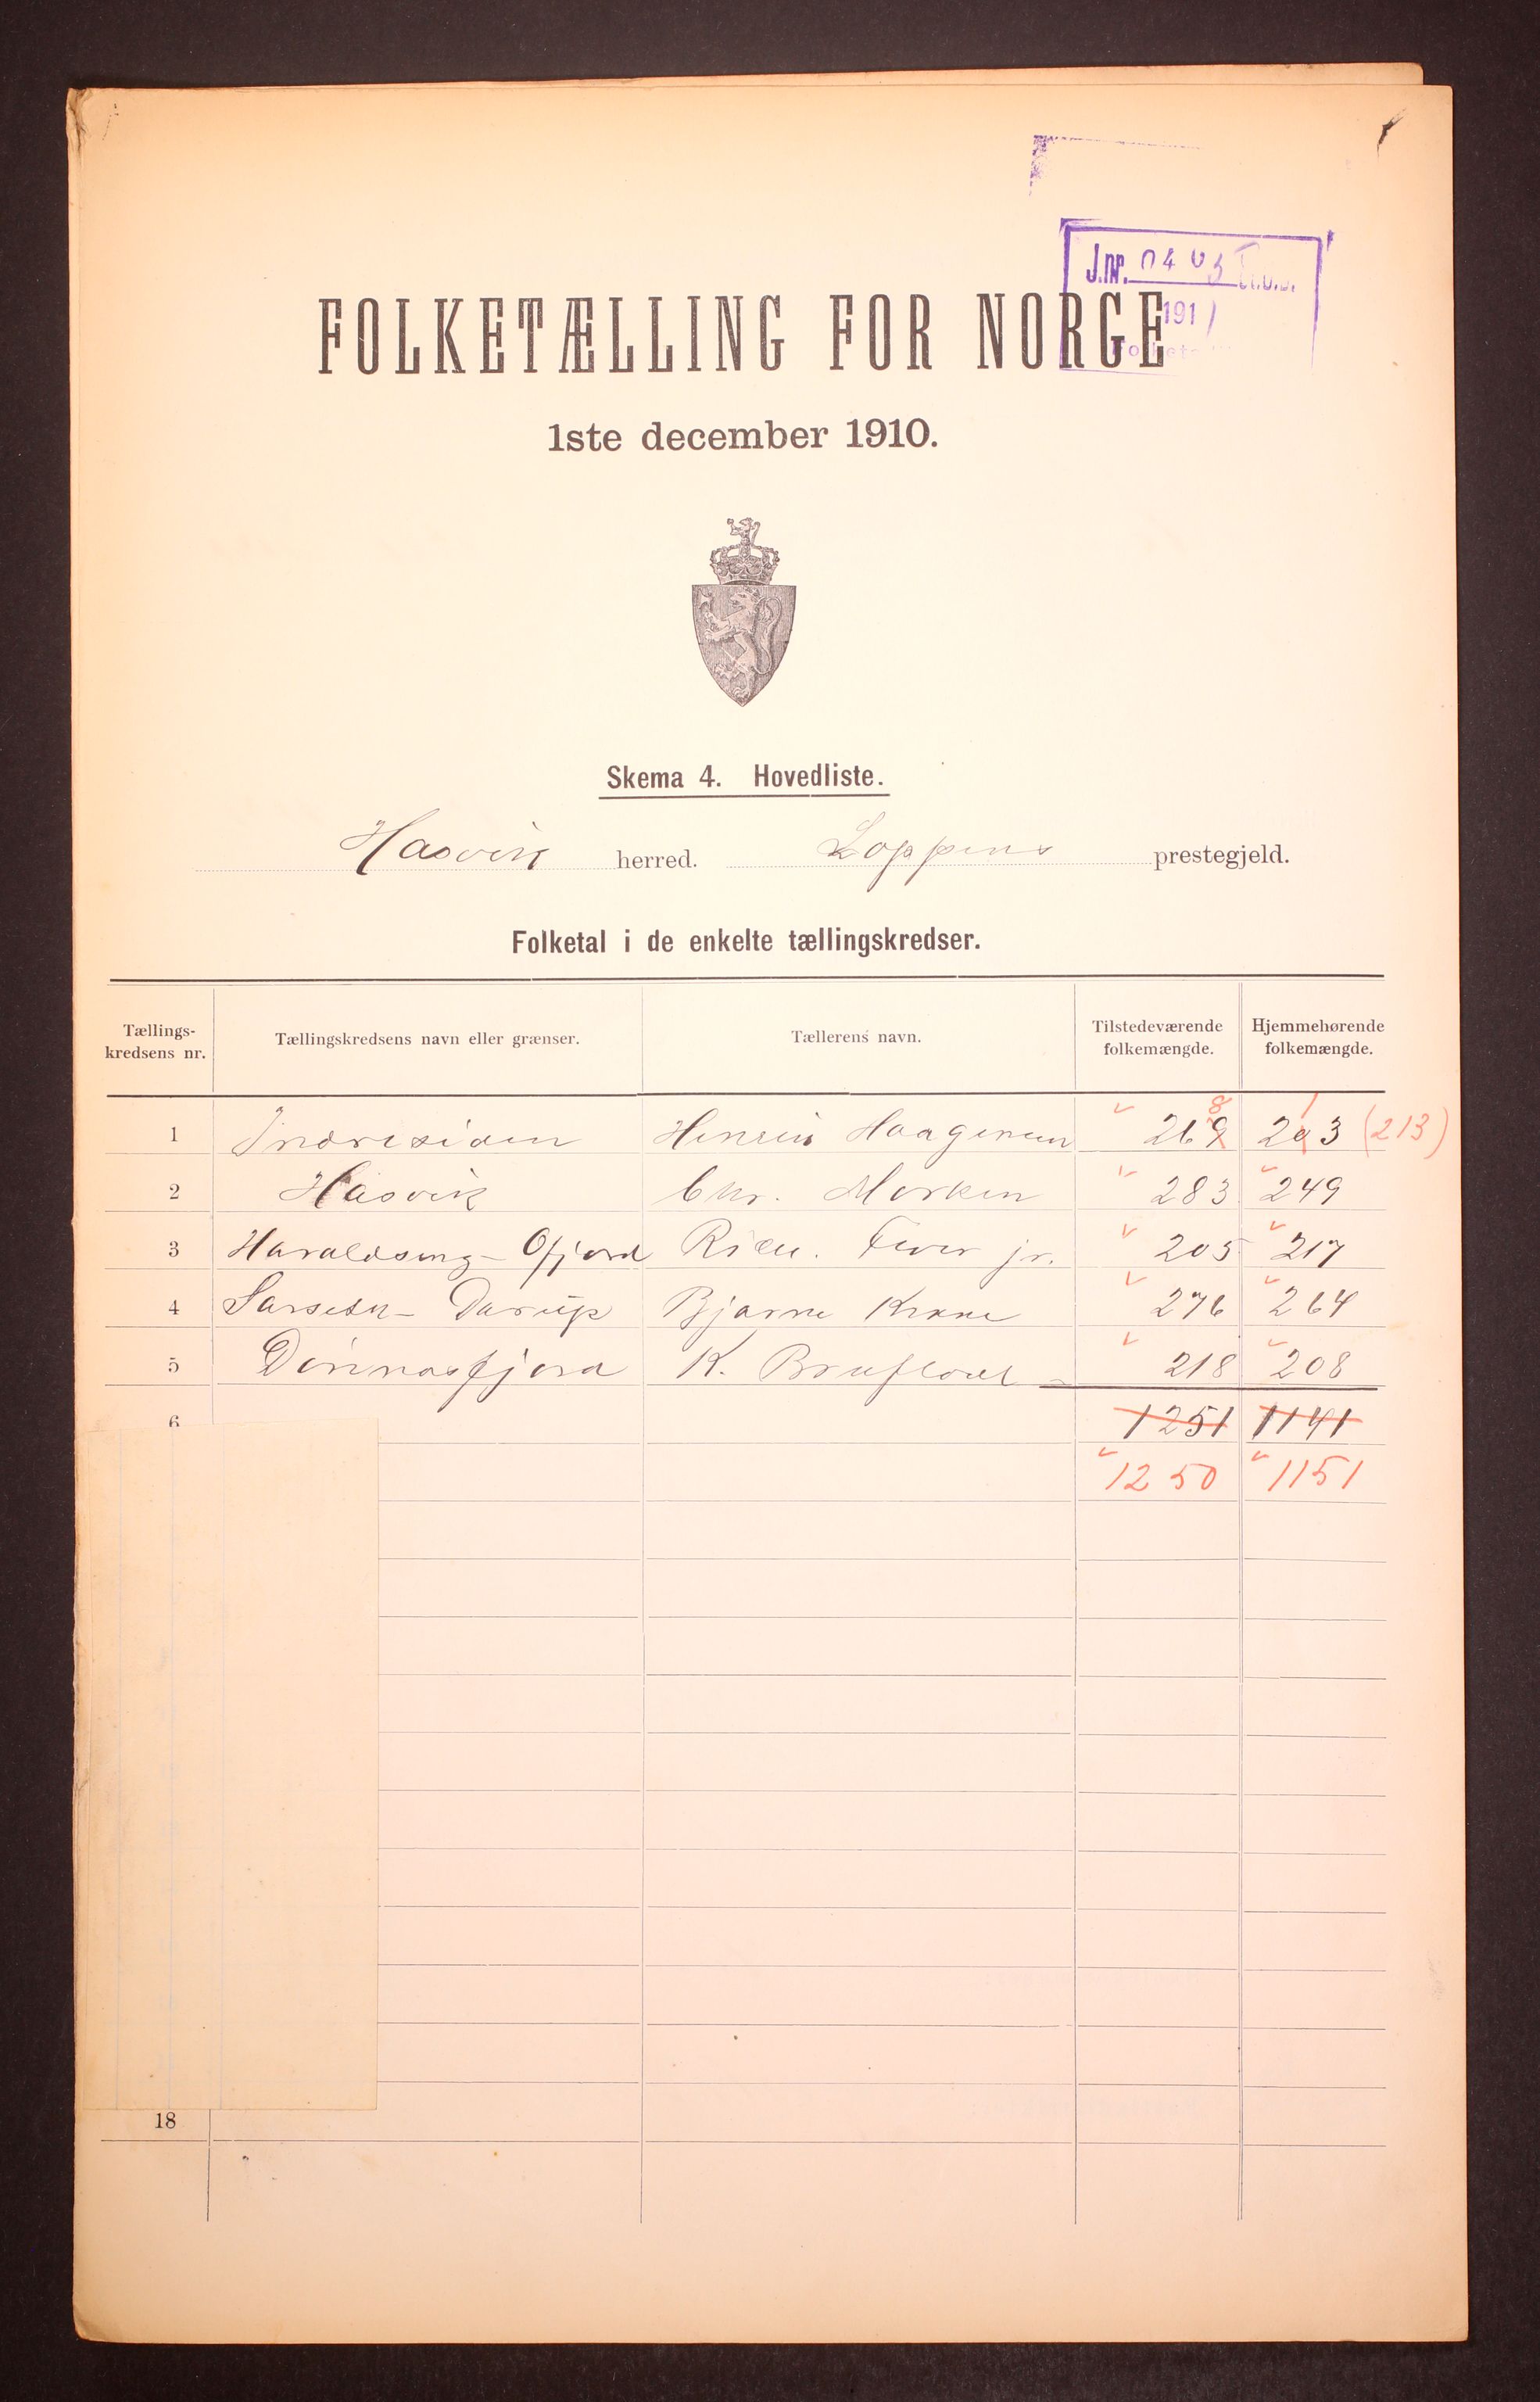 J.nr. 0403
191
FOLKETÆLLING FOR NORGE
1ste december 1910.
Skema 4. Hovedliste.
Hasvik herred. Loppens prestegjeld.
Folketal i de enkelte tællingskredser.
Tællings-kredsens nr. Tællingskredsens navn eller grænser. Tællerens navn. Tilstedeværende folkemængde. Hjemmehørende folkemængde.
8 1
1 Indresiden Henrik Haagensen 269 203 (213)
2 Hasvik Chr. Morken 283 249
3 Haraldseng - Ofjord Rich. Fever jr. 205 217
4 Sørsebu - Darup Bjarne Krane 276 264
5 Dønnesfjord K. Brufladt 218 208
6 1251 1141
1250 1151
18